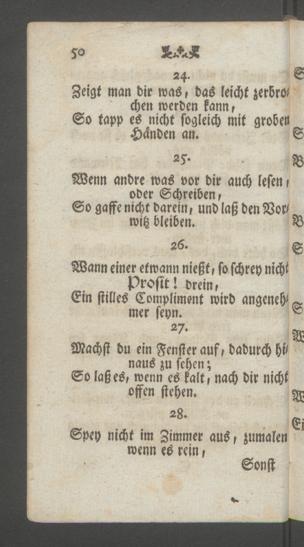 50
24.
Zeigt man dir was, das leicht zerbro-
chen werden kann,
So tapp es nicht sogleich mit groben
Händen an.
25.
Wenn andre was vor dir auch lesen,
oder Schreiben,
So gaffe nicht darein, und laß den Vor-
witz bleiben.
26.
Wann einer etwann nießt, so schrey nicht
Prosit! drein,
Ein stilles Compliment wird angeneh-
mer seyn.
27.
Machst du ein Fenster auf, dadurch hi-
naus zu sehen;
So laß es, wenn es kalt, nach dir nicht
offen stehen.
28.
Spey nicht im Zimmer aus, zumalen
wenn es rein,
Sonst